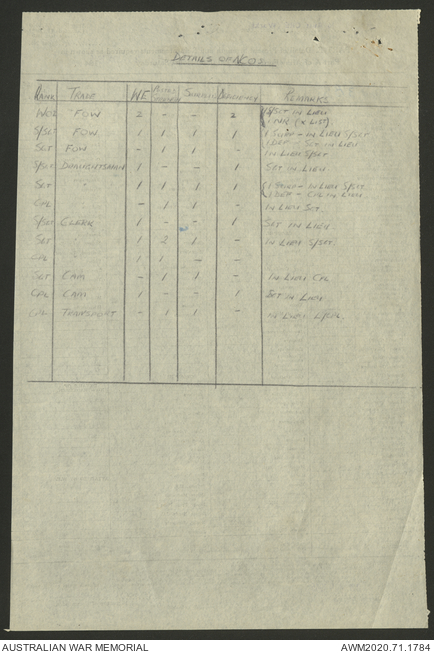 DETAILS OF NCOS.
RANK TRADE WE SURPLUS DEFICIENCY REMARKS
WO2 FOW 2 - - 2 S/SGT IN LIEU
1 NIR (X LIST).
S/SGT FOW. 1 1 1 1 1 SURP - IN LIEU S/SGT
1 DEF - SGT IN LIEU
SGT FOW - 1 1 - IN LIEU S/SGT
S/SGT DRAUGHTSMAN 1 - - 1 SGT IN LIEU
SGT " 1 1 1 1 1 SURP - IN LIEU S/SGT.
1 DEF - CPL IN LIEU
CPL - 1 1 - IN LIEU SGT.
S/SGT CLERK 1 - - 1 SGT IN LIEU.
SGT " 1 2 1 - IN LIEU S/SGT.
CPL " 1 1 - -
SGT CAM - 1 1 - IN LIEU CPL
CPL CAM 1 - - 1 SGT IN LIEU
CPL TRANSPORT - 1 1 - IN LIEU L/CPL.
AUSTRALIAN WAR MEMORIAL AWM2020.71.1784